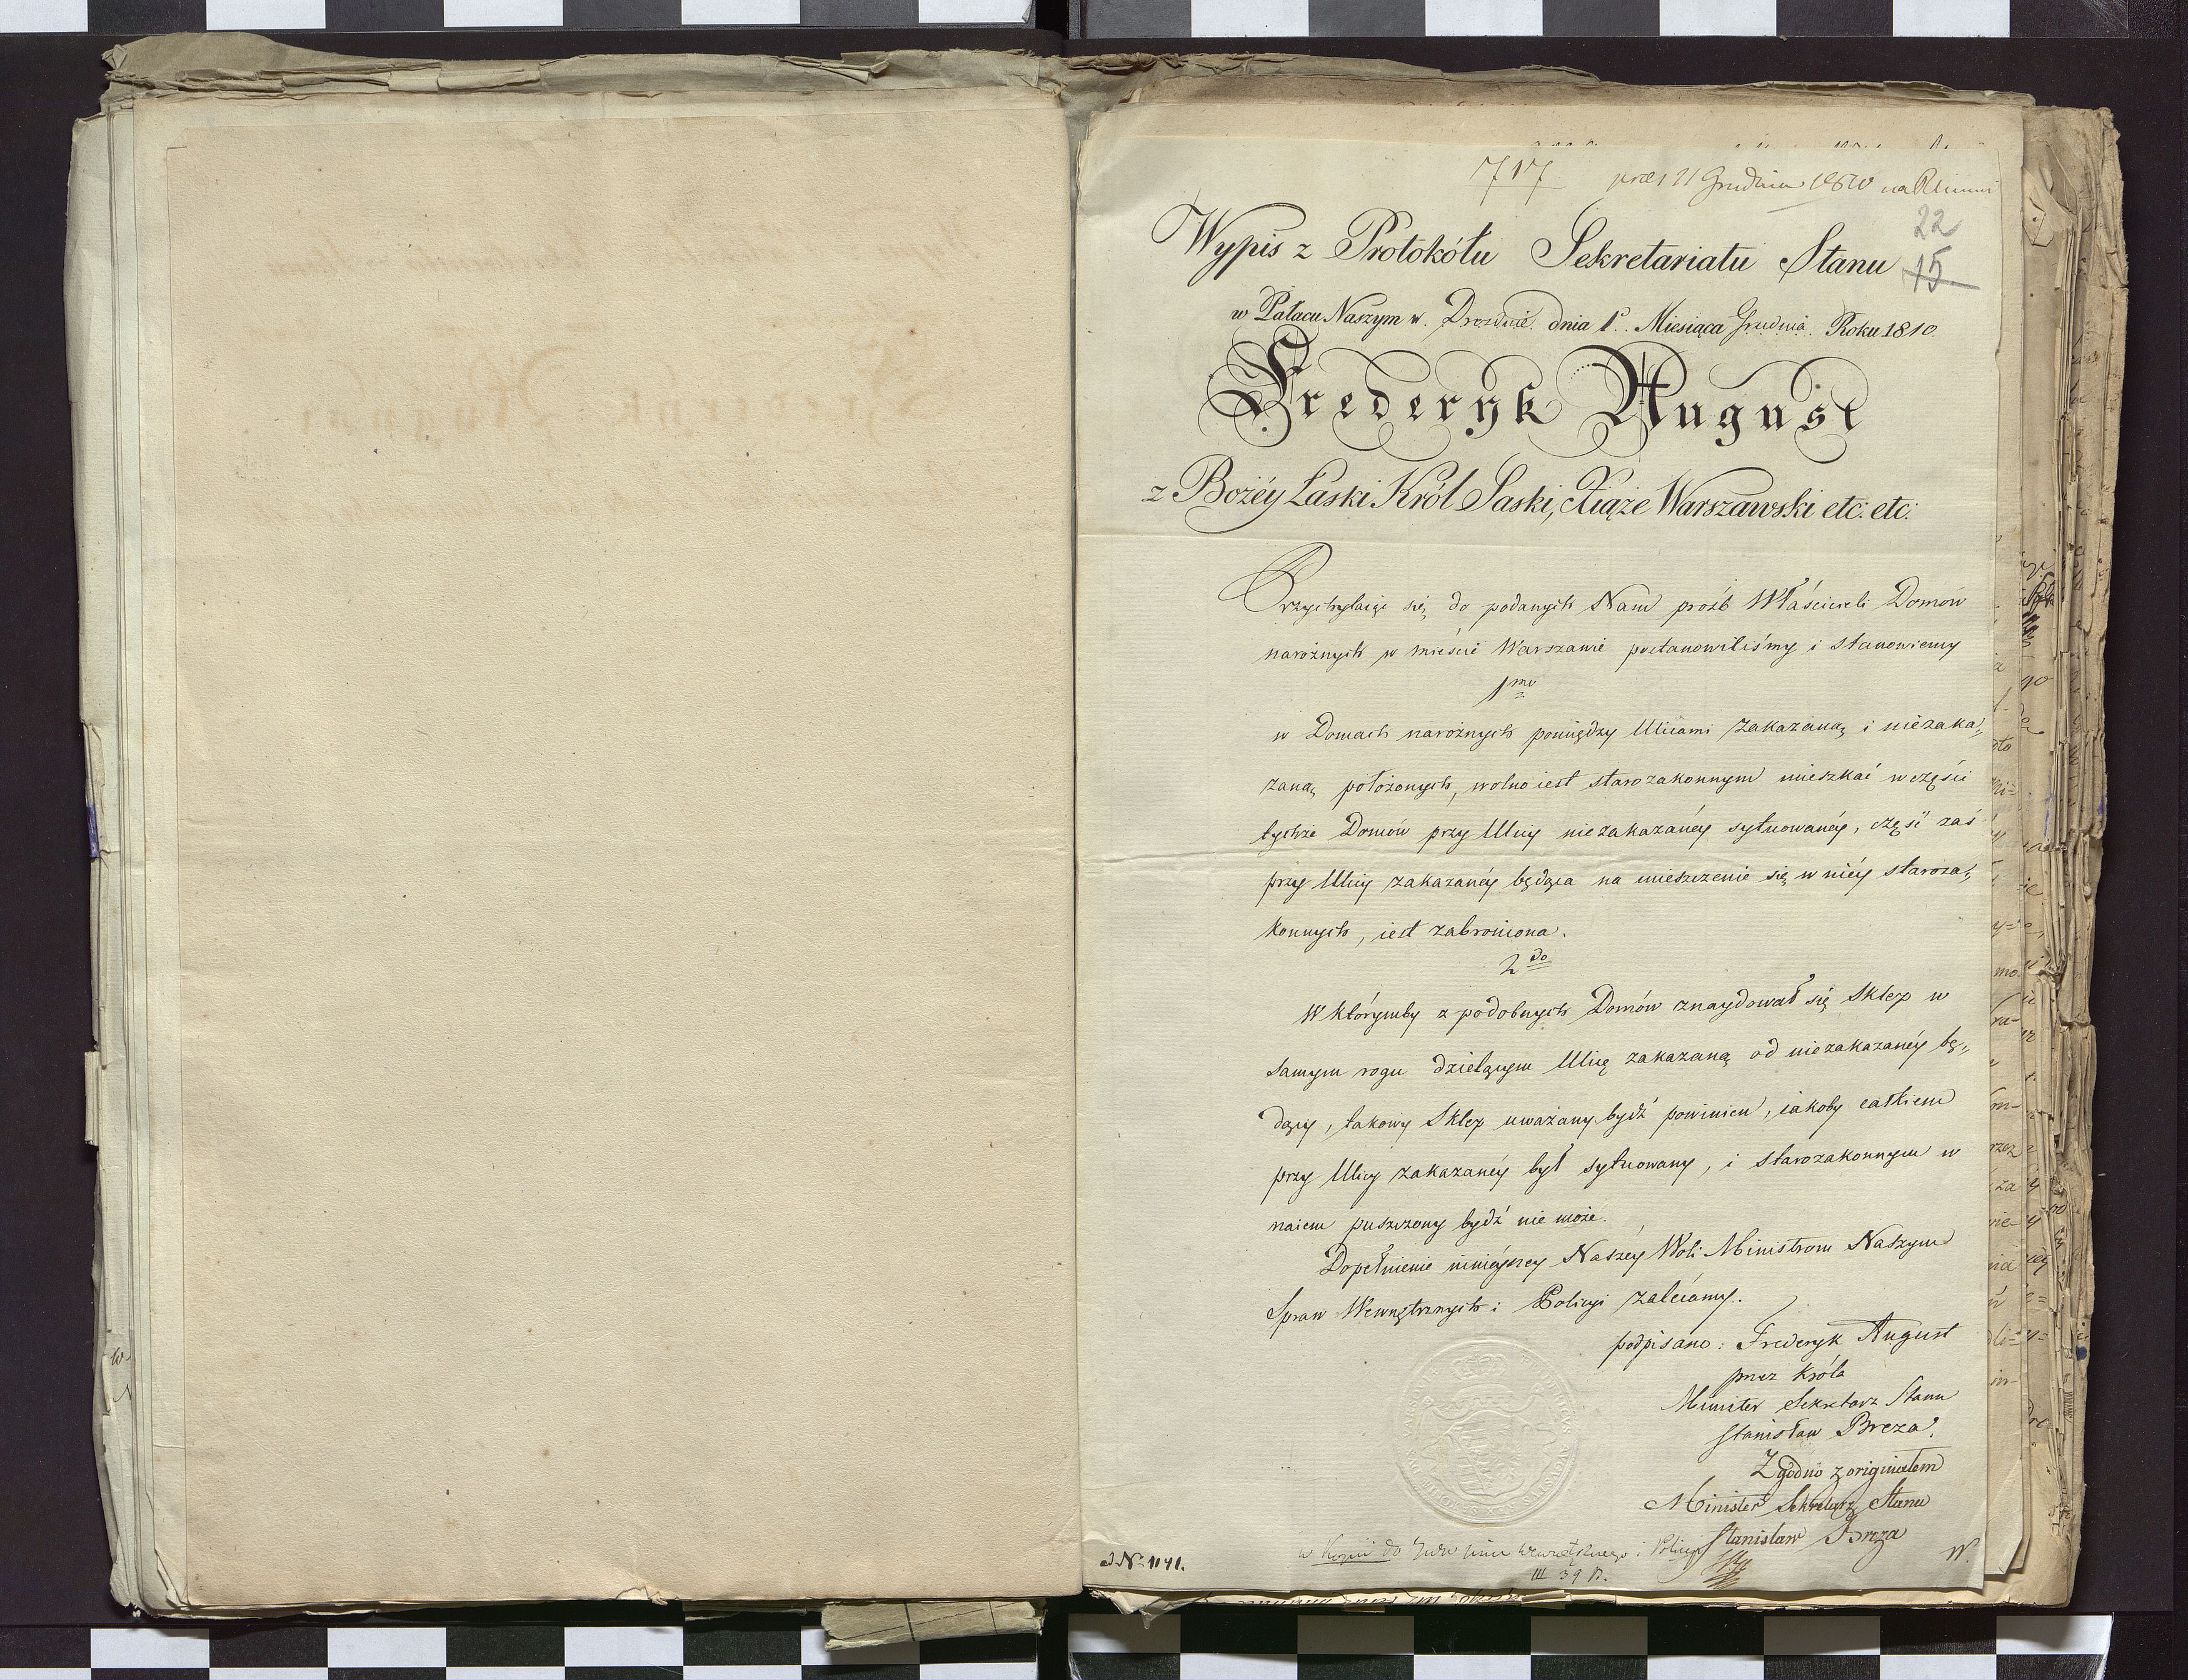 717 pres 11 Grudnia 1810
22
Wypis z Protokółu Sekretariatu Stanu 15
w Pałacu Naszym w. Dreźnie. dnia 1º. Miesiąca Grudnia. Roku 1810.
Frederyk August
z Bożéy Łaski Król Saski, Xiąże Warszawski etc: etc:
Przychylaiąc się do podanych Nam proźb Właścicieli Domów
narożnych w mieście Warszawie postanowiliśmy i stanowiemy
1mo
w Domach narożnych pomiędzy Ulicami zakazaną i niezaka„
zaną położonych, wolno iest starozakonnym mieszkać w części
tychże Domów przy Ulicy niezakazanéy sytuowanéy, część zaś
przy Ulicy zakazanéy będąca na mieszczenie się w niéy staroza„
konnych, iest zabroniona.
2do
W którymby z podobnych Domów znaydował się Sklep w
samym rogu dzielącym Ulicę zakazaną od niezakazanéy bę„
dący, takowy Sklep uważany bydź powinien, iakoby całkiem
przy Ulicy zakazanéy był sytuowany, i starozakonnym w
naiem puszczony bydź nie może.
Dopełnienie ninieyszey Naszéy Woli Ministrom Naszym
Spraw Wewnętrznych i Policyi zalecamy.
podpisano: Frederyk August
przez Króla
Minister Sekretarz Stanu
Stanisław Breza.
Zgodno z originałem
Minister Sekretarz Stanu
Stanisław Breza
w Kopii do i Policyi
III 39 B.
W.
J. Nº 1141.